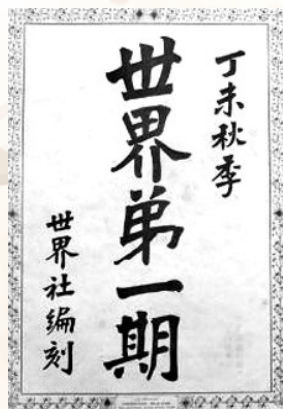 丁未秋季
世界第一期
世界社编刻